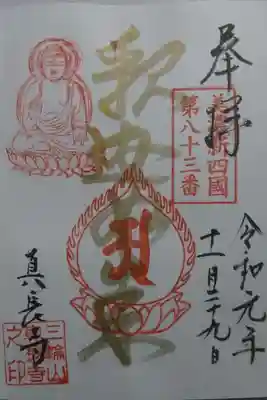 奉拝
美濃新四國
第八十三番
釈迦如来
令和元年
十一月二十九日
真長寺
三輪山
之印